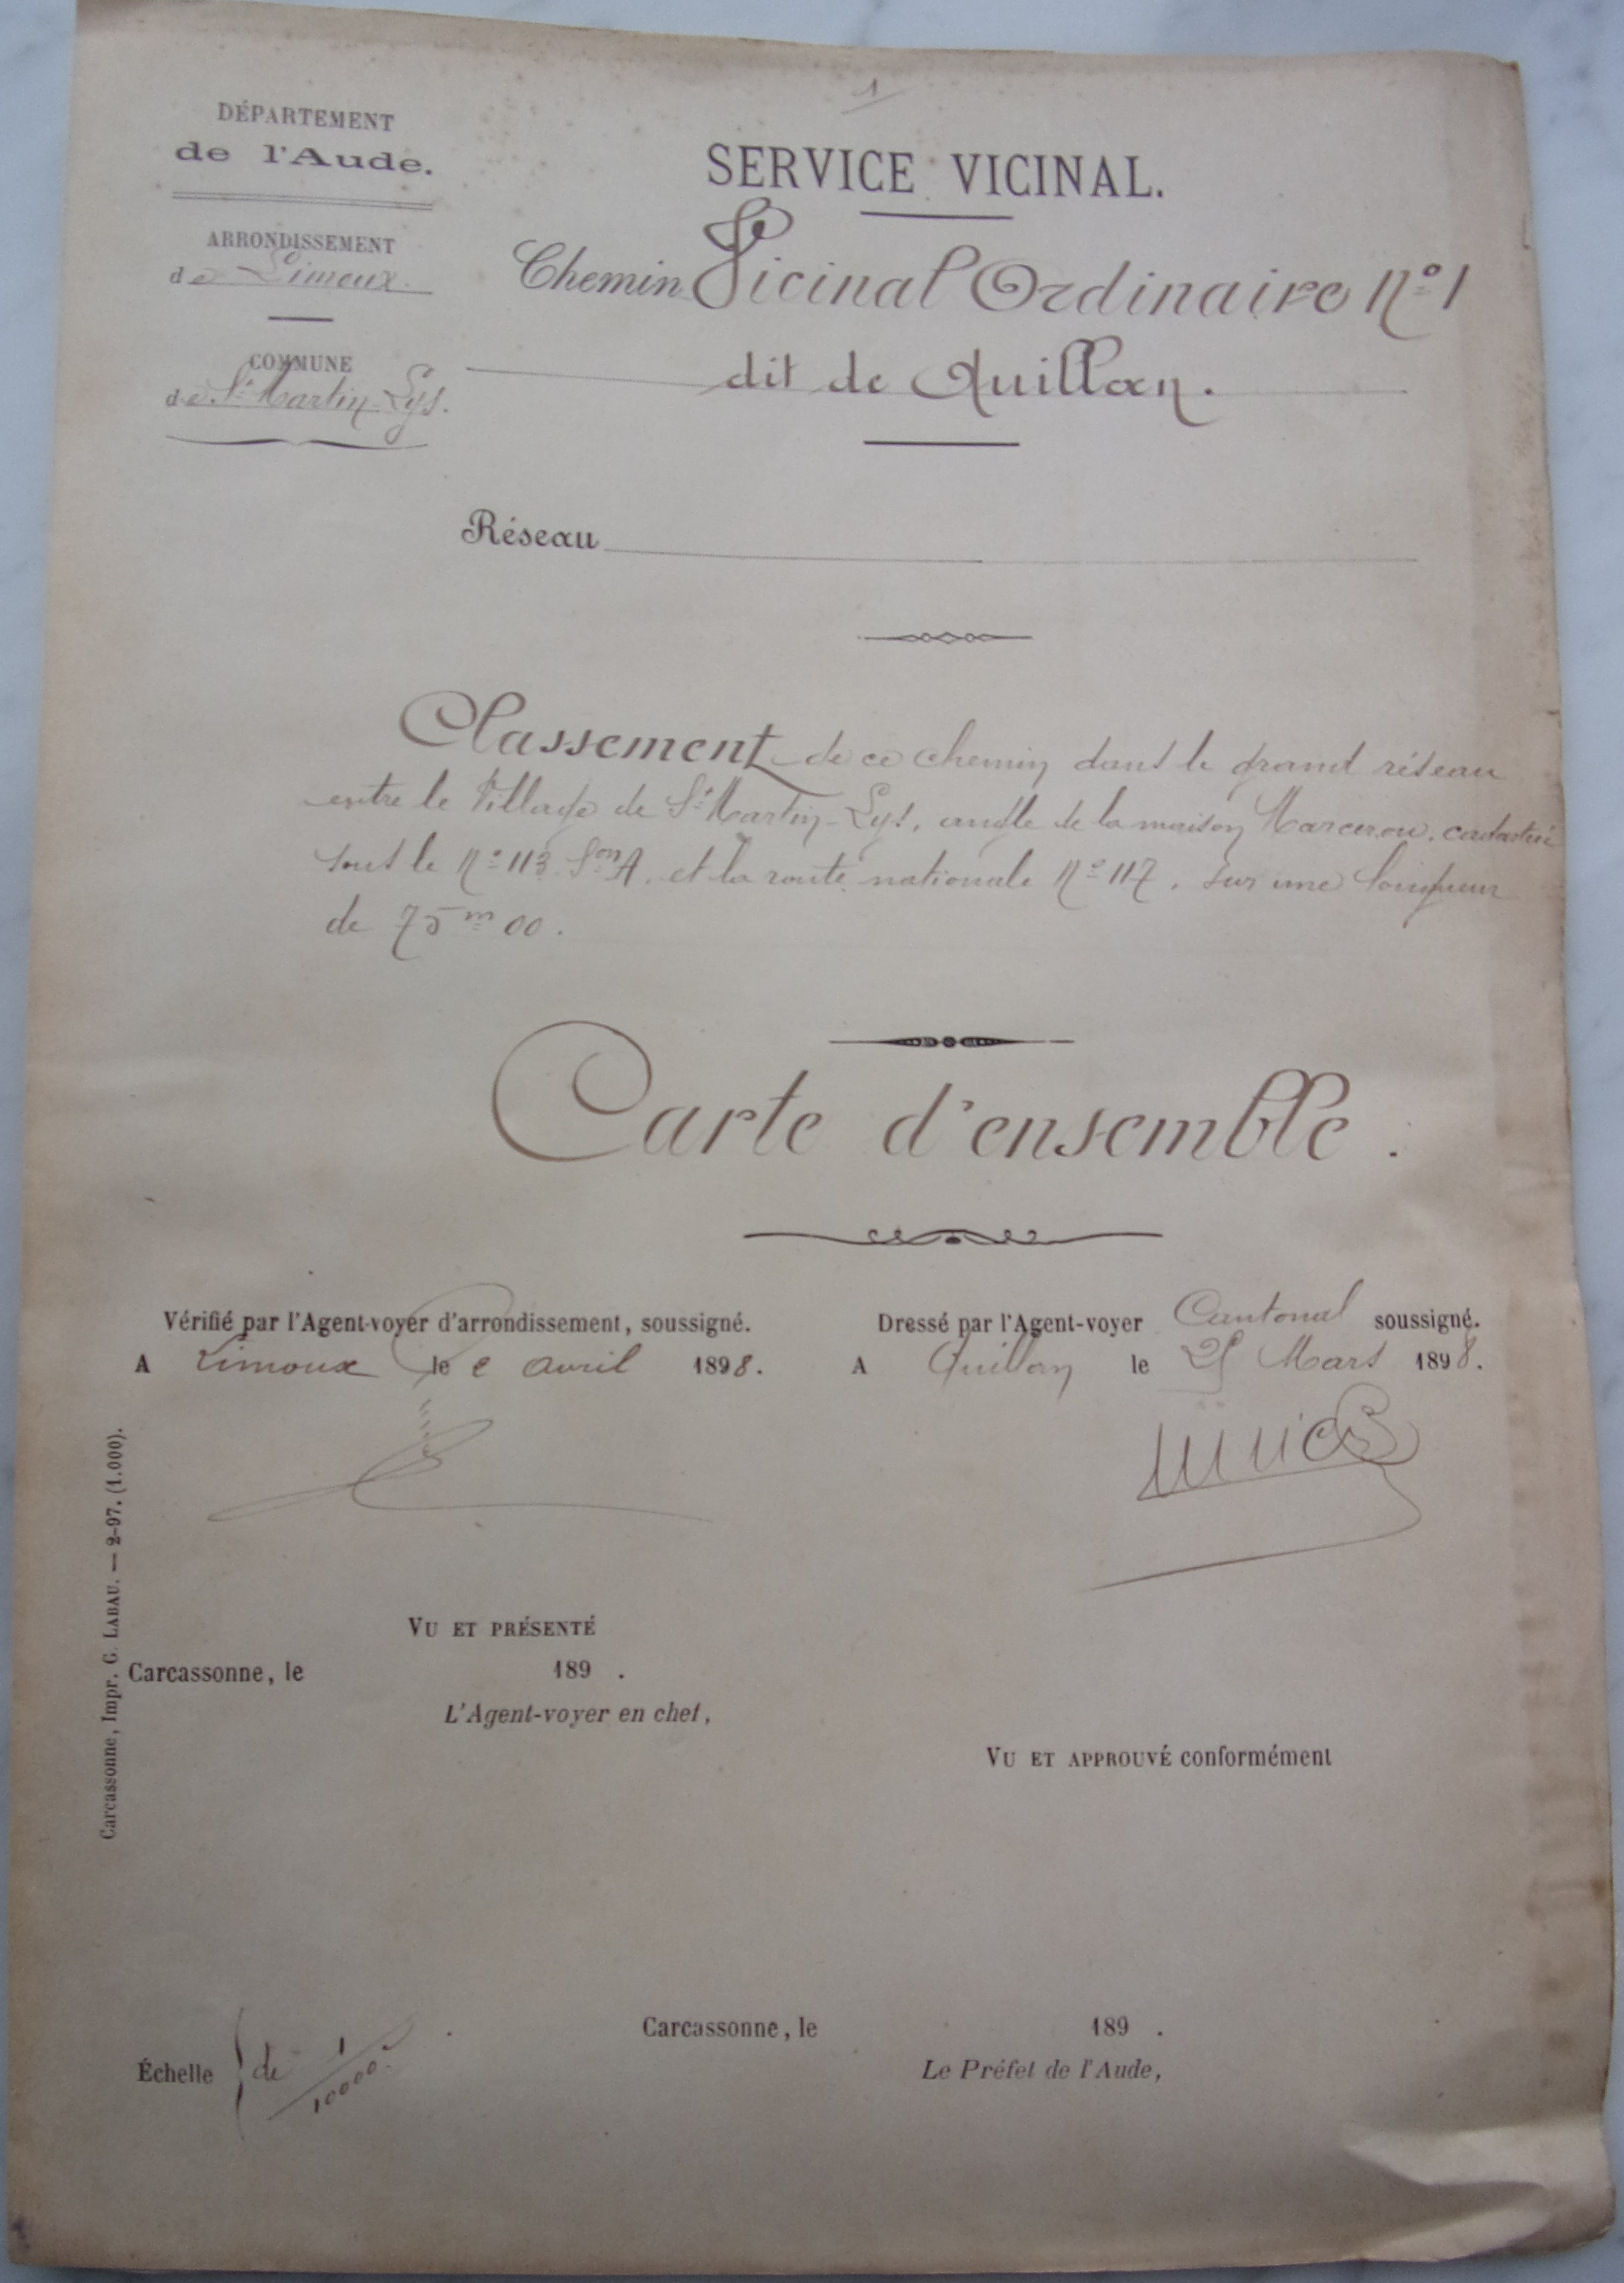 1
DÉPARTEMENT
de l'Aude.
ARRONDISSEMENT
de Limoux.
COMMUNE
de St Martin-Lys.
SERVICE VICINAL.
Chemin Vicinal Ordinaire No 1
dit de Quillan.
Réseau
Classement de ce chemin dans le grand réseau
entre le Village de St Martin-Lys, angle de la maison Marcerou, cadastrée
sous le No 113 Son A. et la route nationale No 117, sur une longueur
de 75m 00.
Carte d'ensemble.
Vérifié par l'Agent-voyer d'arrondissement, soussigné.
A Limoux le 2 avril 1898.
Dressé par l'Agent-voyer Cantonal soussigné.
A Quillan le Mars 1898.
VU ET PRÉSENTÉ
Carcassonne, le 189 .
L'Agent-voyer en chef,
VU ET APPROUVÉ conformément
Carcassonne, le 189 .
Le Préfet de l'Aude,
Échelle de 1/10000.
Carcassonne, Impr. G. LABAU. — 2-97. (1.000).